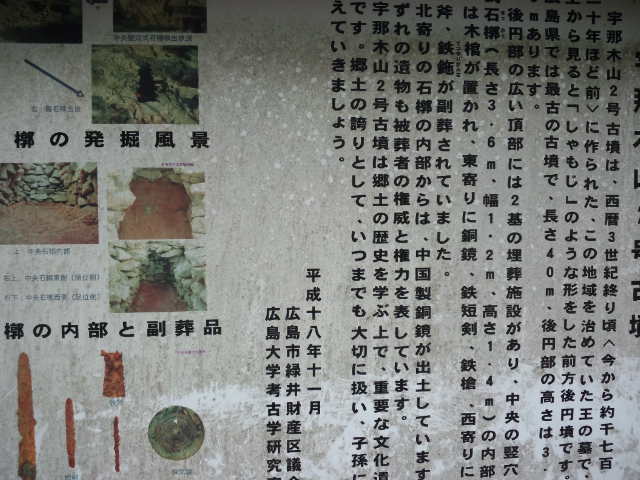 宇那木山2号古墳
宇那木山2号古墳は、西暦3世紀終り頃〈今から約千七百
二十年ほど前〉に作られた、この地域を治めていた王の墓で、
土から見ると「しゃもじ」のような形をした前方後円墳です。
広島県では最古の古墳で、長さ40m、後円部の高さは3.
mあります。
後円部の広い頂部には2基の埋葬施設があり、中央の竪穴
式石槨(長さ3.6m、幅1.2m、高さ1.4m)の内部
は木棺が置かれ、東寄りに銅鏡、鉄短剣、鉄槍、西寄りに
斧、鉄鉇が副葬されていました。
北寄りの石槨の内部からは、中国製銅鏡が出土しています
ずれの遺物も被葬者の権威と権力を表しています。
宇那木山2号古墳は郷土の歴史を学ぶ上で、重要な文化遺
です。郷土の誇りとして、いつまでも大切に扱い、子孫に
えていきましょう。
平成十八年十一月
広島市緑井財産区議会
広島大学考古学研究室
中央竪穴式石槨検出状況
槨の発掘風景
上:中央石槨内部
右上:中央石槨東側(頭位側)
右下:中央石槨西側(足位側)
槨の内部と副葬品